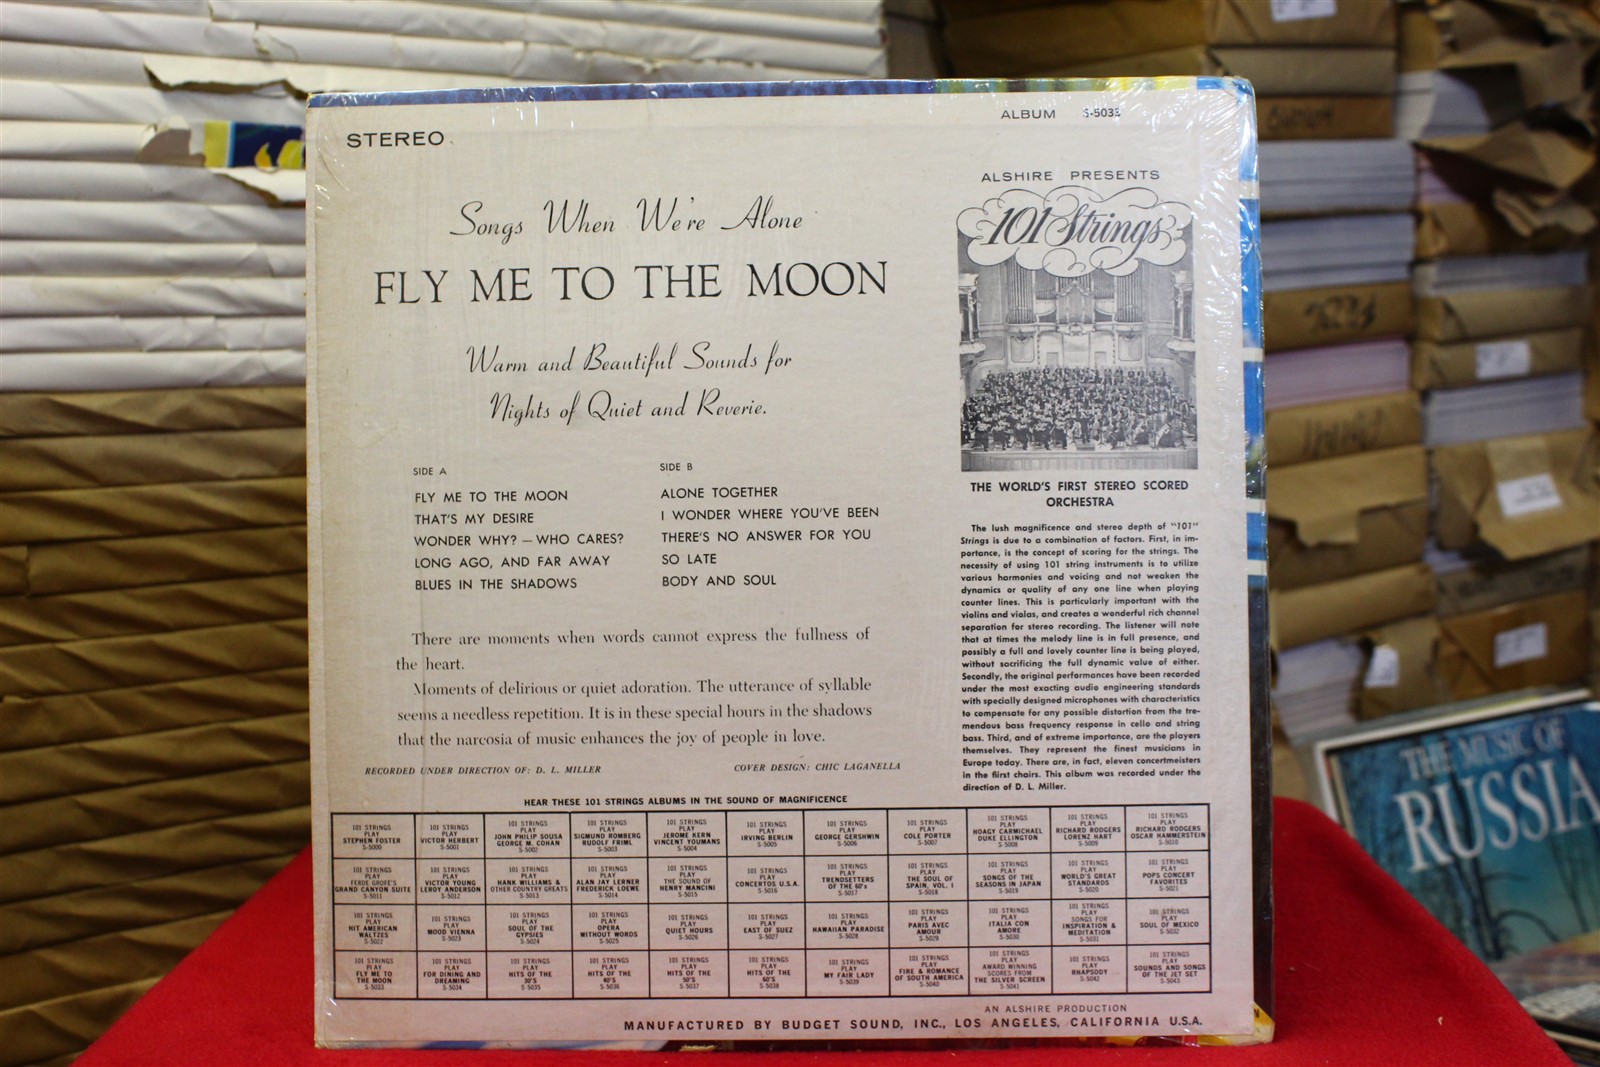 STEREO
ALBUM S-5033
Songs When We're Alone
FLY ME TO THE MOON
Warm and Beautiful Sounds for
Nights of Quiet and Reverie.
SIDE A
FLY ME TO THE MOON
THAT'S MY DESIRE
WONDER WHY? — WHO CARES?
LONG AGO, AND FAR AWAY
BLUES IN THE SHADOWS
SIDE B
ALONE TOGETHER
I WONDER WHERE YOU'VE BEEN
THERE'S NO ANSWER FOR YOU
SO LATE
BODY AND SOUL
There are moments when words cannot express the fullness of
the heart.
Moments of delirious or quiet adoration. The utterance of syllable
seems a needless repetition. It is in these special hours in the shadows
that the narcosia of music enhances the joy of people in love.
RECORDED UNDER DIRECTION OF: D. L. MILLER
COVER DESIGN: CHIC LAGANELLA
ALSHIRE PRESENTS
101 Strings
THE WORLD'S FIRST STEREO SCORED
ORCHESTRA
The lush magnificence and stereo depth of "101"
Strings is due to a combination of factors. First, in im-
portance, is the concept of scoring for the strings. The
necessity of using 101 string instruments is to utilize
various harmonies and voicing and not weaken the
dynamics or quality of any one line when playing
counter lines. This is particularly important with the
violins and violas, and creates a wonderful rich channel
separation for stereo recording. The listener will note
that at times the melody line is in full presence, and
possibly a full and lovely counter line is being played,
without sacrificing the full dynamic value of either.
Secondly, the original performances have been recorded
under the most exacting audio engineering standards
with specially designed microphones with characteristics
to compensate for any possible distortion from the tre-
mendous bass frequency response in cello and string
bass. Third, and of extreme importance, are the players
themselves. They represent the finest musicians in
Europe today. There are, in fact, eleven concertmeisters
in the first chairs. This album was recorded under the
direction of D. L. Miller.
HEAR THESE 101 STRINGS ALBUMS IN THE SOUND OF MAGNIFICENCE
101 STRINGS
PLAY
STEPHEN FOSTER
S-5000
101 STRINGS
PLAY
VICTOR HERBERT
S-5001
101 STRINGS
PLAY
JOHN PHILIP SOUSA
GEORGE M. COHAN
S-5002
101 STRINGS
PLAY
SIGMUND ROMBERG
RUDOLF FRIML
S-5003
101 STRINGS
PLAY
JEROME KERN
VINCENT YOUMANS
S-5004
101 STRINGS
PLAY
IRVING BERLIN
S-5005
101 STRINGS
PLAY
GEORGE GERSHWIN
S-5006
101 STRINGS
PLAY
COLE PORTER
S-5007
101 STRINGS
PLAY
HOAGY CARMICHAEL
DUKE ELLINGTON
S-5008
101 STRINGS
PLAY
RICHARD RODGERS
LORENZ HART
S-5009
101 STRINGS
PLAY
RICHARD RODGERS
OSCAR HAMMERSTEIN
S-5010
101 STRINGS
PLAY
FERDE GROFE'S
GRAND CANYON SUITE
S-5011
101 STRINGS
PLAY
VICTOR YOUNG
LEROY ANDERSON
S-5012
101 STRINGS
PLAY
HANK WILLIAMS &
OTHER COUNTRY GREATS
S-5013
101 STRINGS
PLAY
ALAN JAY LERNER
FREDERICK LOEWE
S-5014
101 STRINGS
PLAY
THE SOUND OF
HENRY MANCINI
S-5015
101 STRINGS
PLAY
CONCERTOS U.S.A.
S-5016
101 STRINGS
PLAY
TRENDSETTERS
OF THE 60's
S-5017
101 STRINGS
PLAY
THE SOUL OF
SPAIN, VOL. I
S-5018
101 STRINGS
PLAY
SONGS OF THE
SEASONS IN JAPAN
S-5019
101 STRINGS
PLAY
WORLD'S GREAT
STANDARDS
S-5020
101 STRINGS
PLAY
POPS CONCERT
FAVORITES
S-5021
101 STRINGS
PLAY
HIT AMERICAN
WALTZES
S-5022
101 STRINGS
PLAY
MOOD VIENNA
S-5023
101 STRINGS
PLAY
SOUL OF THE
GYPSIES
S-5024
101 STRINGS
PLAY
OPERA
WITHOUT WORDS
S-5025
101 STRINGS
PLAY
QUIET HOURS
S-5026
101 STRINGS
PLAY
EAST OF SUEZ
S-5027
101 STRINGS
PLAY
HAWAIIAN PARADISE
S-5028
101 STRINGS
PLAY
PARIS AVEC
AMOUR
S-5029
101 STRINGS
PLAY
ITALIA CON
AMORE
S-5030
101 STRINGS
PLAY
SONGS FOR
INSPIRATION &
MEDITATION
S-5031
101 STRINGS
PLAY
SOUL OF MEXICO
S-5032
101 STRINGS
PLAY
FLY ME TO
THE MOON
S-5033
101 STRINGS
PLAY
FOR DINING AND
DREAMING
S-5034
101 STRINGS
PLAY
HITS OF THE
30'S
S-5035
101 STRINGS
PLAY
HITS OF THE
40'S
S-5036
101 STRINGS
PLAY
HITS OF THE
50'S
S-5037
101 STRINGS
PLAY
HITS OF THE
60'S
S-5038
101 STRINGS
PLAY
MY FAIR LADY
S-5039
101 STRINGS
PLAY
FIRE & ROMANCE
OF SOUTH AMERICA
S-5040
101 STRINGS
PLAY
AWARD WINNING
SCORES FROM
THE SILVER SCREEN
S-5041
101 STRINGS
PLAY
RHAPSODY
S-5042
101 STRINGS
PLAY
SOUNDS AND SONGS
OF THE JET SET
S-5043
AN ALSHIRE PRODUCTION
MANUFACTURED BY BUDGET SOUND, INC., LOS ANGELES, CALIFORNIA U.S.A.
THE MUSIC OF
RUSSIA